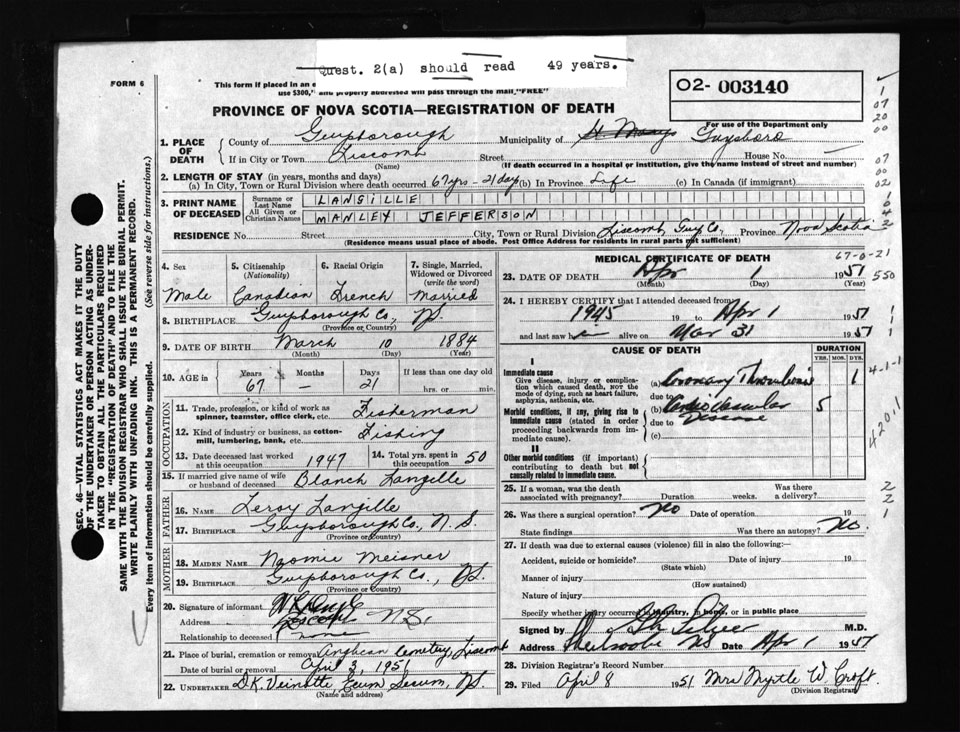 Quest. 2(a) should read 49 years.
FORM 6
This form if placed in an e
use $300," and properly addressed will pass through the mail "FREE"
O2- 003140
For use of the Department only
PROVINCE OF NOVA SCOTIA—REGISTRATION OF DEATH
1. PLACE OF DEATH
County of Guysborough Municipality of St Marys Guysboro
If in City or Town Liscomb Street House No. —
(Name) (If death occurred in a hospital or institution, give the name instead of street and number)
2. LENGTH OF STAY (in years, months and days)
(a) In City, Town or Rural Division where death occurred 67 yrs - 21 days (b) In Province Life (c) In Canada (if immigrant)
3. PRINT NAME OF DECEASED
Surname or Last Name LANGILLE
All Given or Christian Names MANLEY JEFFERSON
RESIDENCE No. Street City, Town or Rural Division Liscomb, Guy Co, Province Nova Scotia
(Residence means usual place of abode. Post Office Address for residents in rural parts not sufficient)
4. Sex
Male
5. Citizenship
(Nationality)
Canadian
6. Racial Origin
French
7. Single, Married, Widowed or Divorced
(write the word)
Married
8. BIRTHPLACE Guysborough Co, NS
(Province or Country)
9. DATE OF BIRTH March 10 1884
(Month) (Day) (Year)
10. AGE in Years Months Days If less than one day old
67 — 21 hrs. or min.
OCCUPATION
11. Trade, profession, or kind of work as spinner, teamster, office clerk, etc. Fisherman
12. Kind of industry or business, as cotton-mill, lumbering, bank, etc. Fishing
13. Date deceased last worked at this occupation 1947
14. Total yrs. spent in this occupation 50
15. If married give name of wife or husband of deceased Blanch Langille
FATHER
16. Name Leroy Langille
17. Birthplace Guysborough Co, N.S.
(Province or Country)
MOTHER
18. MAIDEN NAME Naomie Meisner
19. BIRTHPLACE Guysborough Co., NS.
(Province or Country)
20. Signature of informant
Address N.S.
Relationship to deceased none
21. Place of burial, cremation or removal Anglican Cemetery, Liscomb
Date of burial or removal April 3, 1951
22. UNDERTAKER D.K. Veinotte Ecum Secum, NS.
(Name and address)
MEDICAL CERTIFICATE OF DEATH
67-0-21
23. DATE OF DEATH Apr 1 1951
(Month) (Day) (Year)
550
24. I HEREBY CERTIFY that I attended deceased from
1945 19 to Apr 1 1951
and last saw h alive on Mar 31 1951
CAUSE OF DEATH
DURATION
YRS. MOS. DYS.
I
Immediate cause
Give disease, injury or complication which caused death, NOT the mode of dying, such as heart failure, asphyxia, asthenia, etc.
(a) Coronary Thrombosis 1
due to
Morbid conditions, if any, giving rise to immediate cause (stated in order proceeding backwards from immediate cause).
(b) Cardiovascular Disease 5
due to
(c)
II
Other morbid conditions (if important) contributing to death but not causally related to immediate cause.
4-1-1
25. If a woman, was the death associated with pregnancy? Duration weeks. Was there a delivery?
26. Was there a surgical operation? No Date of operation 19
State findings Was there an autopsy? No.
27. If death was due to external causes (violence) fill in also the following:
Accident, suicide or homicide? Date of injury 19
(State which)
Manner of injury
(How sustained)
Nature of injury
Specify whether injury occurred in industry, in home, or in public place
Signed by M.D.
Address Sherbrooke NS Date Apr 1 1951
28. Division Registrar's Record Number
29. Filed April 8 1951 Mrs Myrtle W. Croft.
(Division Registrar)
SEC. 46—VITAL STATISTICS ACT MAKES IT THE DUTY
OF THE UNDERTAKER OR PERSON ACTING AS UNDER-
TAKER TO OBTAIN ALL THE PARTICULARS REQUIRED
IN THE "REGISTRATION OF DEATH" AND TO FILE THE
SAME WITH THE DIVISION REGISTRAR WHO SHALL ISSUE THE BURIAL PERMIT.
WRITE PLAINLY WITH UNFADING INK. THIS IS A PERMANENT RECORD.
Every item of information should be carefully supplied. (See reverse side for instructions.)